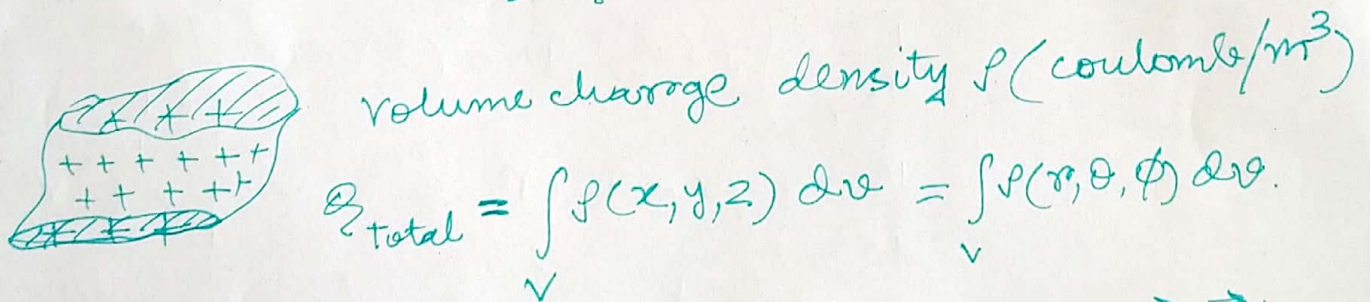 volume charge density ρ (coulomb/m³)
Q total = ∫ᵥ ρ(x, y, z) dv = ∫ᵥ ρ(r, θ, φ) dv.